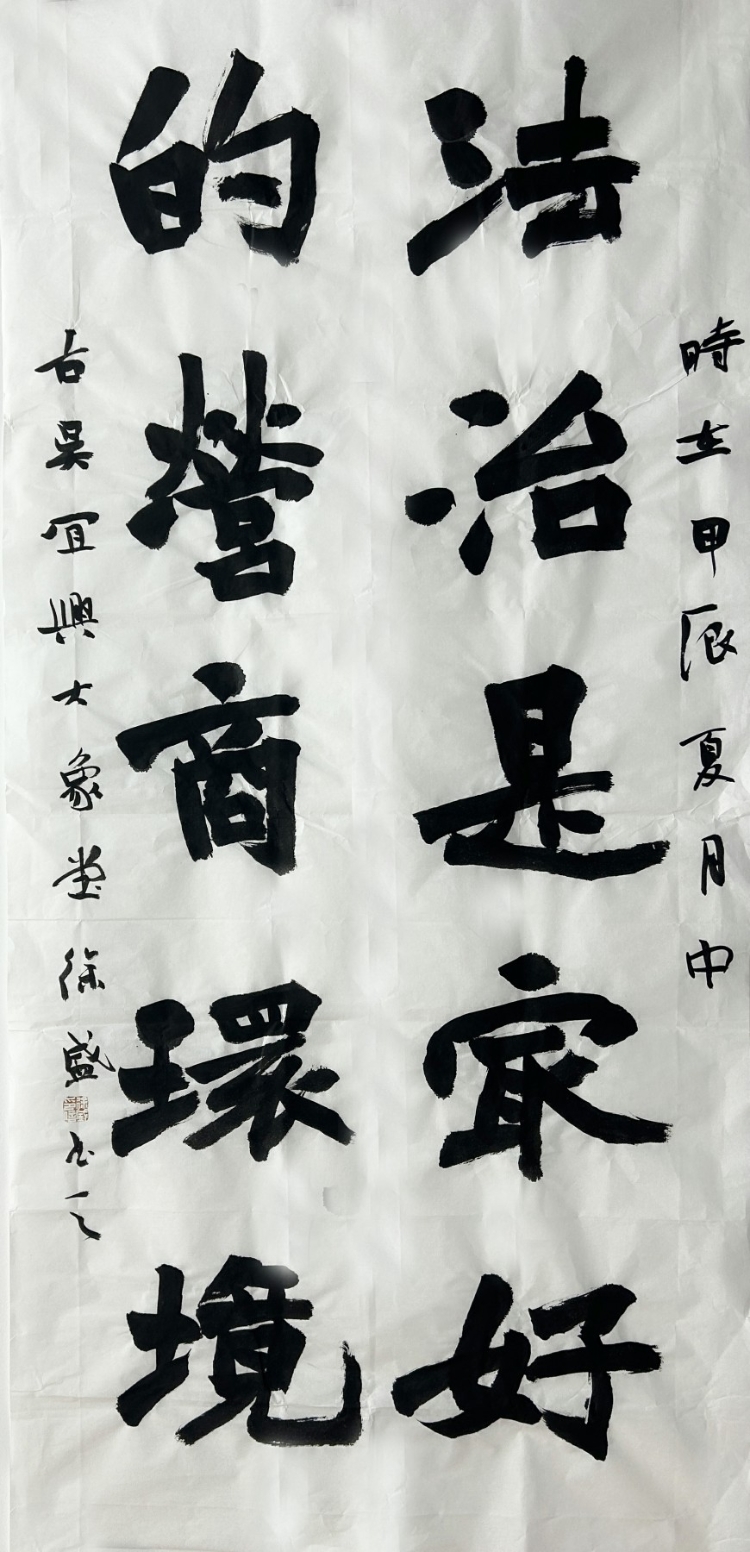 時在甲辰夏月中
法治是㝡好
的營商環境
古吳宜興大象堂徐盛書之